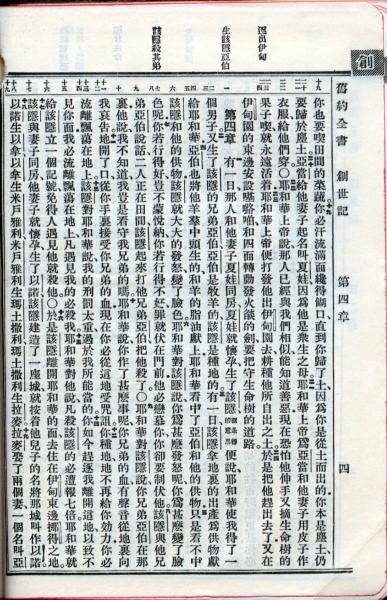 創
逐出伊甸
生該隱亞伯
該隱殺其弟
舊約全書 創世記 第四章 四
你也要喫田間的菜蔬你必汗流滿面纔得餬口直到你歸了土因爲你是從土而出的你本是塵土仍
要歸於塵土亞當給他妻子起名叫夏娃因爲他是衆生之母耶和華上帝爲亞當和他妻子用皮子作
衣服給他們穿○耶和華上帝說那人已經與我們相似能知道善惡現在恐怕他伸手又摘生命樹的
果子喫就永遠活着耶和華上帝便打發他出伊甸園去耕種他所自出之土於是把他趕出去了又在
伊甸園的東邊安設和四面轉動發火燄的劍要把守生命樹的道路
第四章 有一日那人和他妻子夏娃同房夏娃就懷孕生了該隱便說耶和華使我得了一
個男子又生了該隱的兄弟亞伯亞伯是牧羊的該隱是種地的有一日該隱拿地裏的出產爲供物獻
給耶和華亞伯也將他羊羣中頭生的和羊的脂油獻上耶和華看中了亞伯和他的供物只是看不中
該隱和他的供物該隱就大大的發怒變了臉色耶和華對該隱說你爲甚麼發怒呢你爲甚麼變了臉
色呢你若行得好豈不蒙悅納你若行得不好罪就伏在門前他必戀慕你你卻要制伏他該隱與他兄
弟亞伯說話二人正在田間該隱起來打他兄弟亞伯把他殺了○耶和華對該隱說你兄弟亞伯在那
裏他說我不知道我豈是看守我兄弟的嗎耶和華說你作了甚麼事呢你兄弟的血有聲音從地裏向
我哀告地開了口從你手裏接受你兄弟的血現在你必從這地受咒詛你種地地不再給你效力你必
流離飄蕩在地上該隱對耶和華說我的刑罰太重過於我所能當的你如今趕逐我離開這地以致不
見你面我必流離飄蕩在地上凡遇見我的必殺我耶和華對他說凡殺該隱的必遭報七倍耶和華就
給該隱立一個記號免得人遇見他就殺他○於是該隱離開耶和華的面去住在伊甸東邊挪得之地
該隱與妻子同房他妻子就懷孕生了以諾該隱建造了一座城就按着他兒子的名將那城叫作以諾
以諾生以拿以拿生米戶雅利米戶雅利生瑪土撒利瑪土撒利生拉麥拉麥娶了兩個妻一個名叫亞